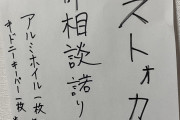 ストォカ
相談諾り
アルミホイル一枚
キドニーキーパー一枚